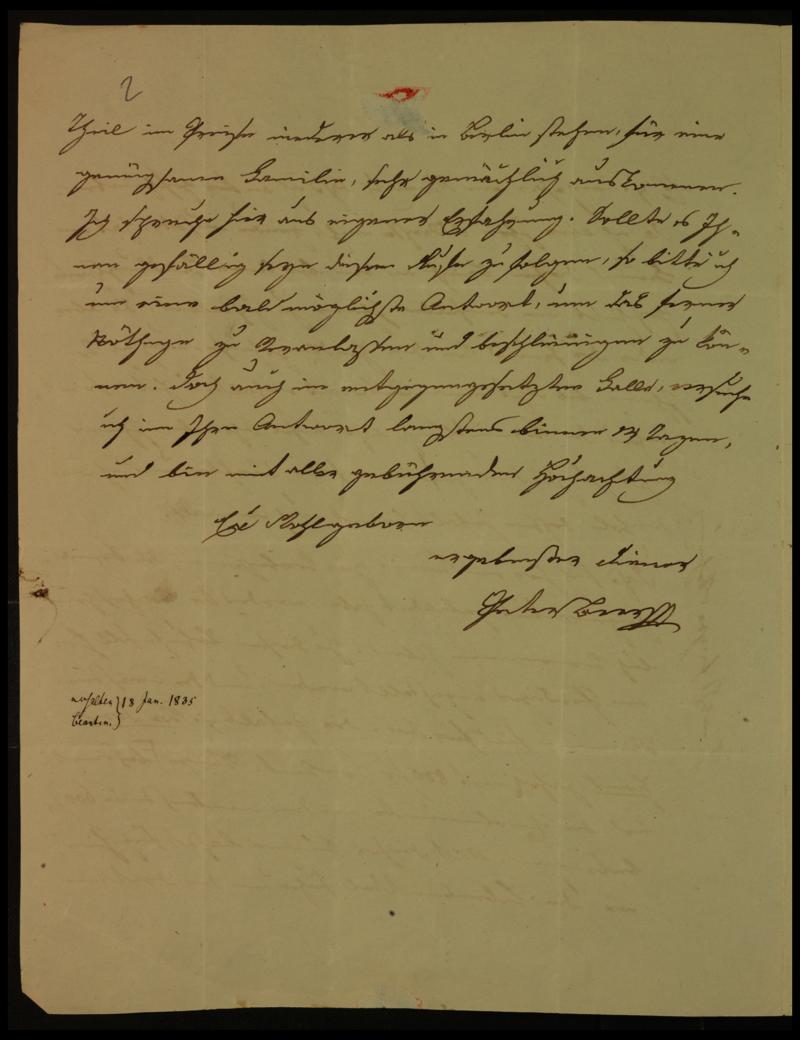 2
Theil im Preise niederer als in Berlin stehen, für eine
genügsame Familie, sehr gemächlich auskommen.
Ich spreche hier aus eigener Erfahrung. Sollte es Ih-
nen gefällig seyn diesem Rufe zu folgen, so bitte ich
um eine bald möglichste Antwort, um das ferner
Nöthige zu veranlassen und beschleunigen zu kön-
nen. Doch auch im entgegengesetzten Falle, ersuche
ich um Ihre Antwort langstens binnen 14 Tagen,
und bin mit aller gebührender Hochachtung
Ew Wohlgeboren
ergebenster Diener
Peter Beer
erhalten } 18 Jan. 1835
beantw. }